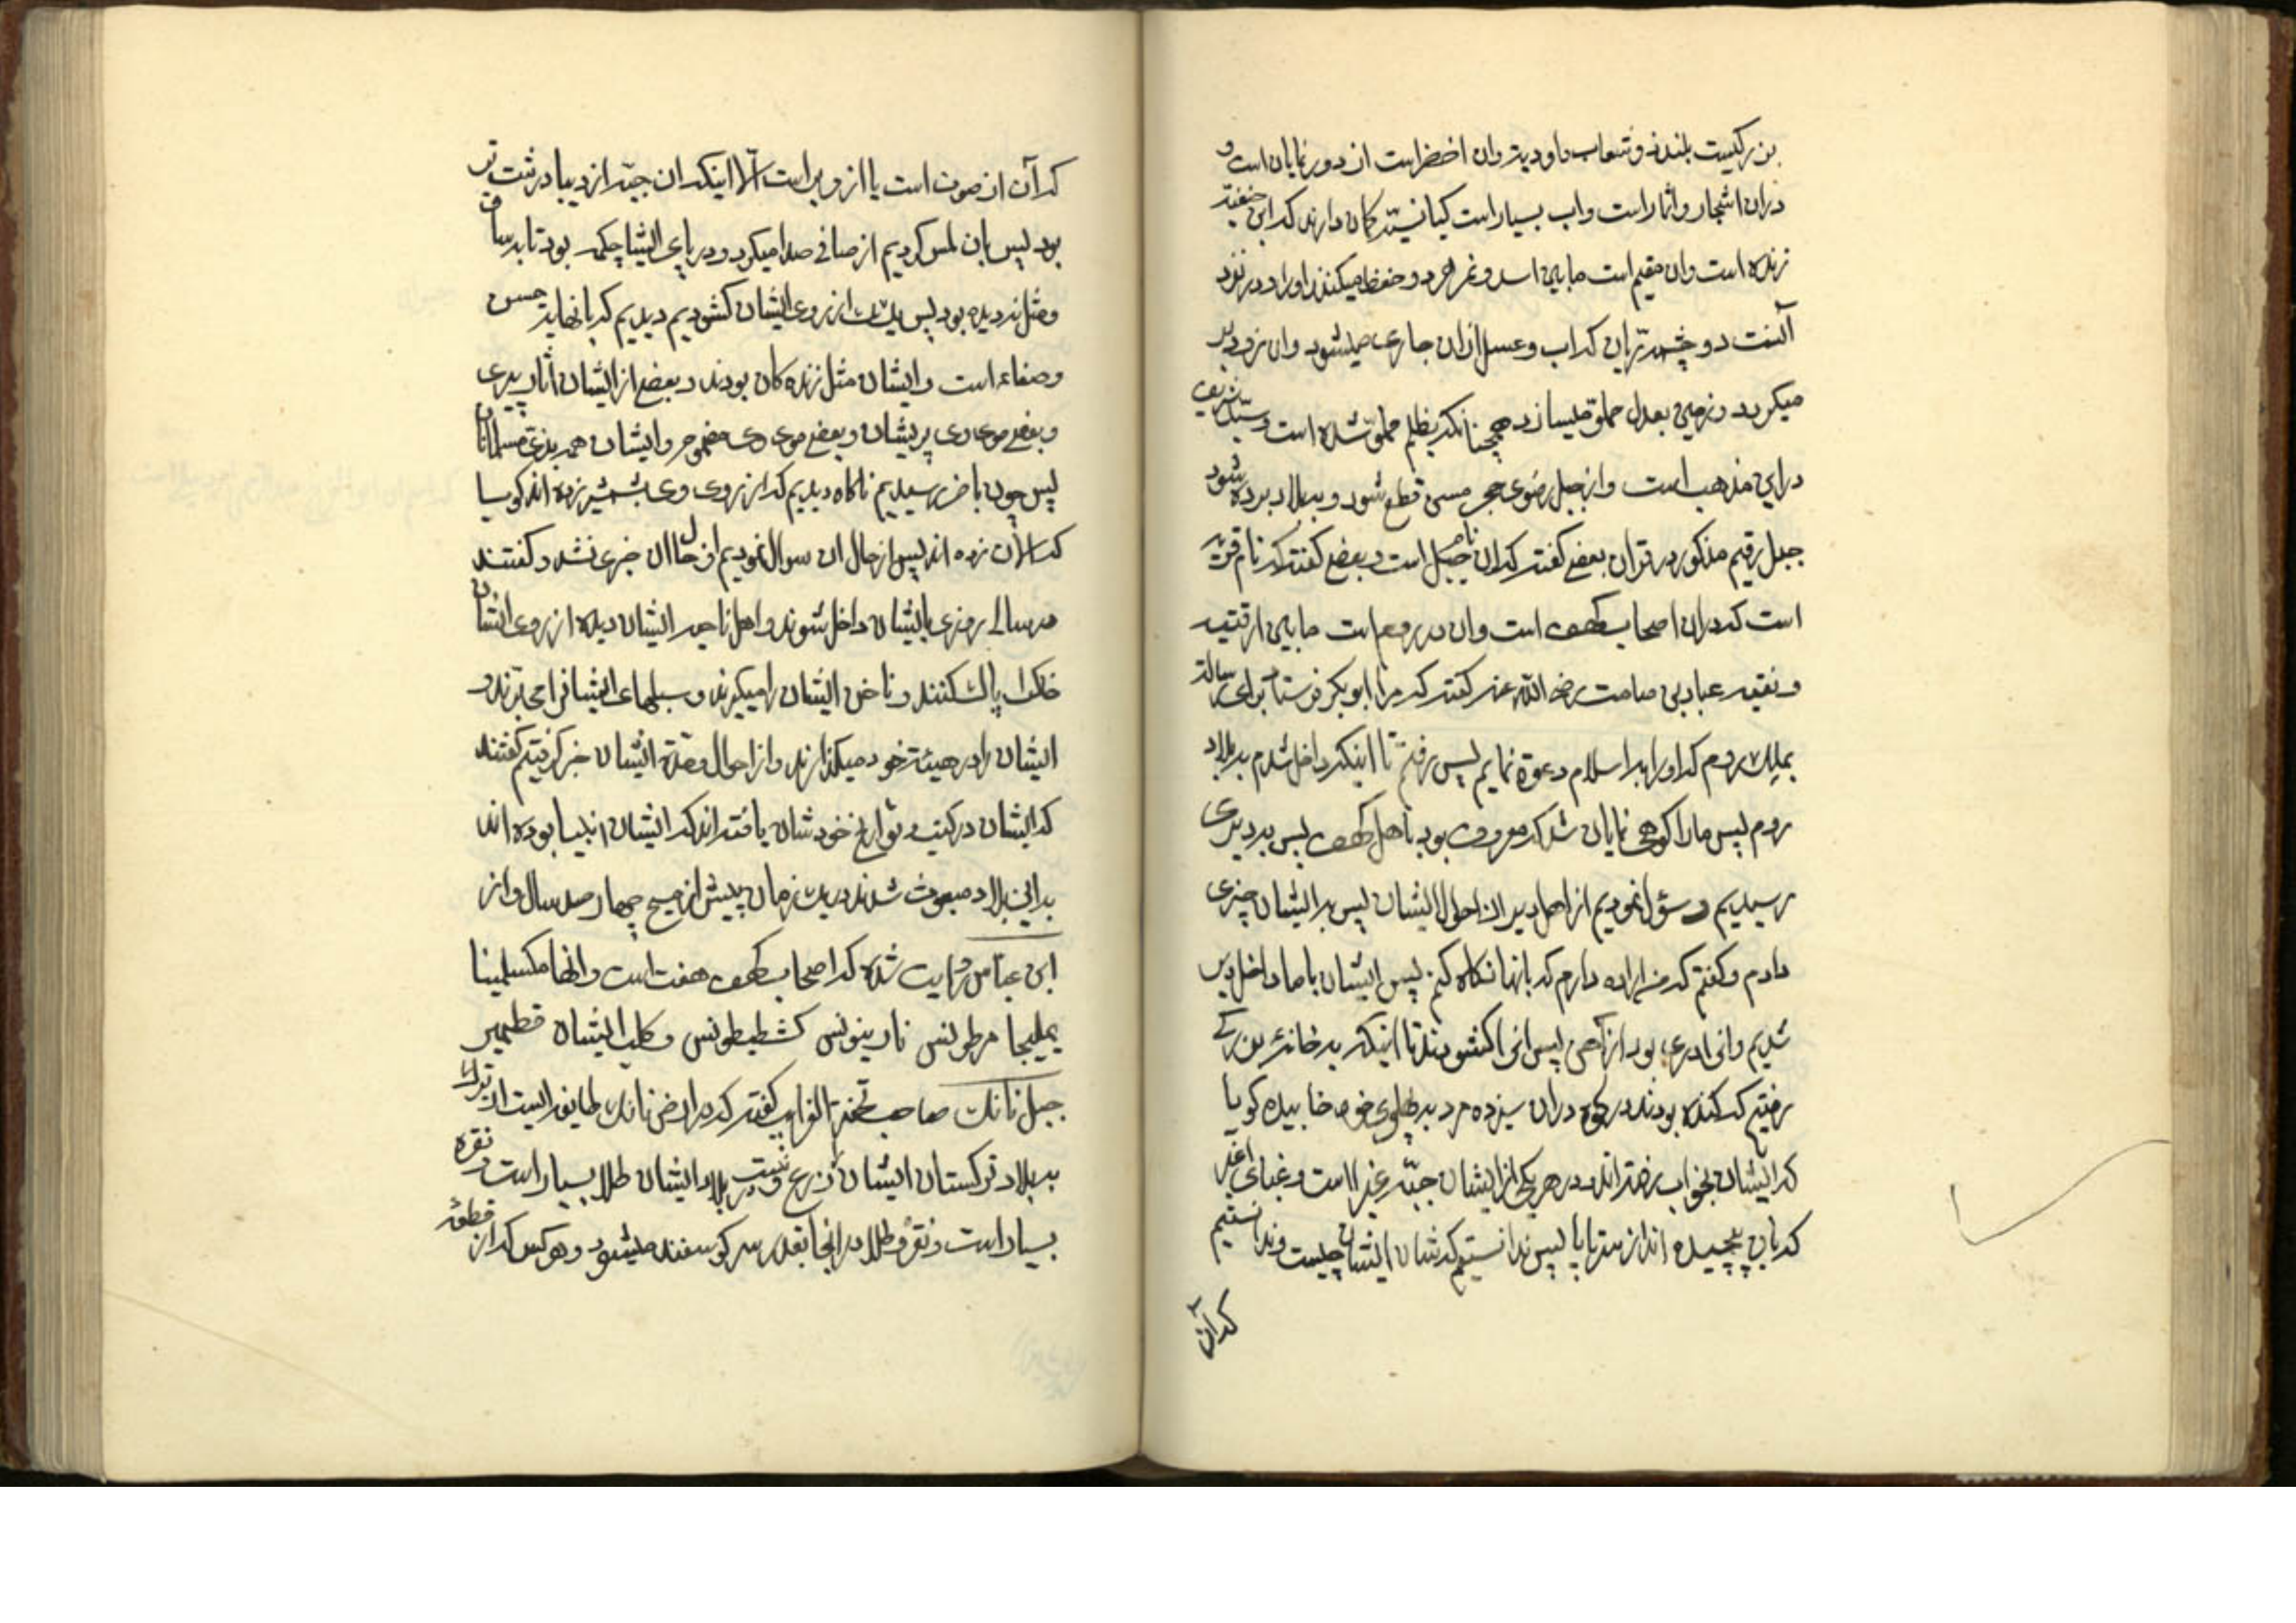 بزرگیست بلند و شعاب و اودیه وان اخضر است از دور نمایان است و
دران اشجار و اثمار است واب بسیار است کیانیته کمان دارند که ابن حنفیه
زنده است وان مقیم است مابین اسد و نمر و حفظ میکنند اورا و در نزد
آنست دو چشمه تران که اب و عسل ازان جاری میشود وان زود بر
میکردد و زمین بعدل مملو میسازد همچنانکه بظلم مملو شده است و سید شریف
دراین مذهب است و از جبل رضوی حجر مسن قطع شود و ببلاد برده شود
جبل رقیم مذکور در قران بعضی گفته که ان نام جبل است و بعضی گفته که نام قریه
است که دران اصحاب کهف است وان در روم است مابین
و نیقیه عباد بن صامت رضی الله عنه گفته که مرا ابو بکر فرستاد برای رسالة
بملک روم که اورا به اسلام دعوة نمایم پس رفتم تا اینکه داخل شدم به بلاد
روم پس مارا کوهی نمایان شد که معروف بود باهل کهف پس به دیری
رسیدیم و سؤال نمودیم از اهل دیر از احوال ایشان پس به ایشان چیزی
دادم و کفتم که من اراده دارم که بانها نکاه کنم پس ایشان باما داخل دیر
شدیم وان ادری بود از آهن پس انرا کشودند تا اینکه به خانۀ بزرگی
رفتیم که کنده بودند در کوه دران سیزده مرد به پهلوی خود خابیده کویا
که ایشان بخواب رفته اند و در هر یکی از ایشان جبّه غبرا است و عبای اغبر
که بان پیچیده اند از سر تا پا پس ندانستیم که شان ایشان چیست و ندانستیم
که آن
که آن از صوف است یا از وبر است الّا اینکه ان جبّه از دیبا درشت تر
بود پس بان لمس کردیم از صافی صدا میکرد و در پای ایشا چکمه بود تا به ساق
و مثل ندیده بود پس یک یک از روی ایشان کشودیم دیدیم که بانها به حسن
و صفاء است و ایشان مثل زنده کان بودند و بعضی از ایشان اثار پیری
و بعضی موی وی پریشان و بعضی موی وی مضموم و ایشان همه بزی مسلمانان
پس چون باخر رسیدیم ناکاه دیدیم که از روی وی بشمشیر زده اند کویا
که الان زده اند پس از حال ان سوال نمودیم از حال ان خبری نشد و کفتند
هر سال روزی بایشان داخل شوند و اهل ناحیه ایشان دیده از روی ایشان
خاک را پاک کنند و ناخن ایشان را میکیرند و سبلهای ایشانرا می برند و
ایشان را در هیئة خود میکذارند و از احوال و مدة ایشان خبر کرفتیم کفتند
که ایشان در کتب و تواریخ خودشان یافته اند که ایشان انبیا بوده اند
به این بلاد مبعوث شدند در یک زمان پیش از مسیح چهار صد سال و از
ابن عباس روایت شده که اصحاب کهف هفت است و انها مکسلمینا
یملیخا مرطونس نارینونس کشطیطونس و کلب ایشان قطمیر
جبل نانک صاحب تحفة الغرایب گفته که در ارض نانک طایفه ایست از ترک
به بلاد ترکستان ایشان زرع نیست و در بلاد ایشان طلا بسیار است و نقره
بسیار است و نقره و طلا در انجا بقدر سر کوسفند میشود و هر کس که از قطعۀ